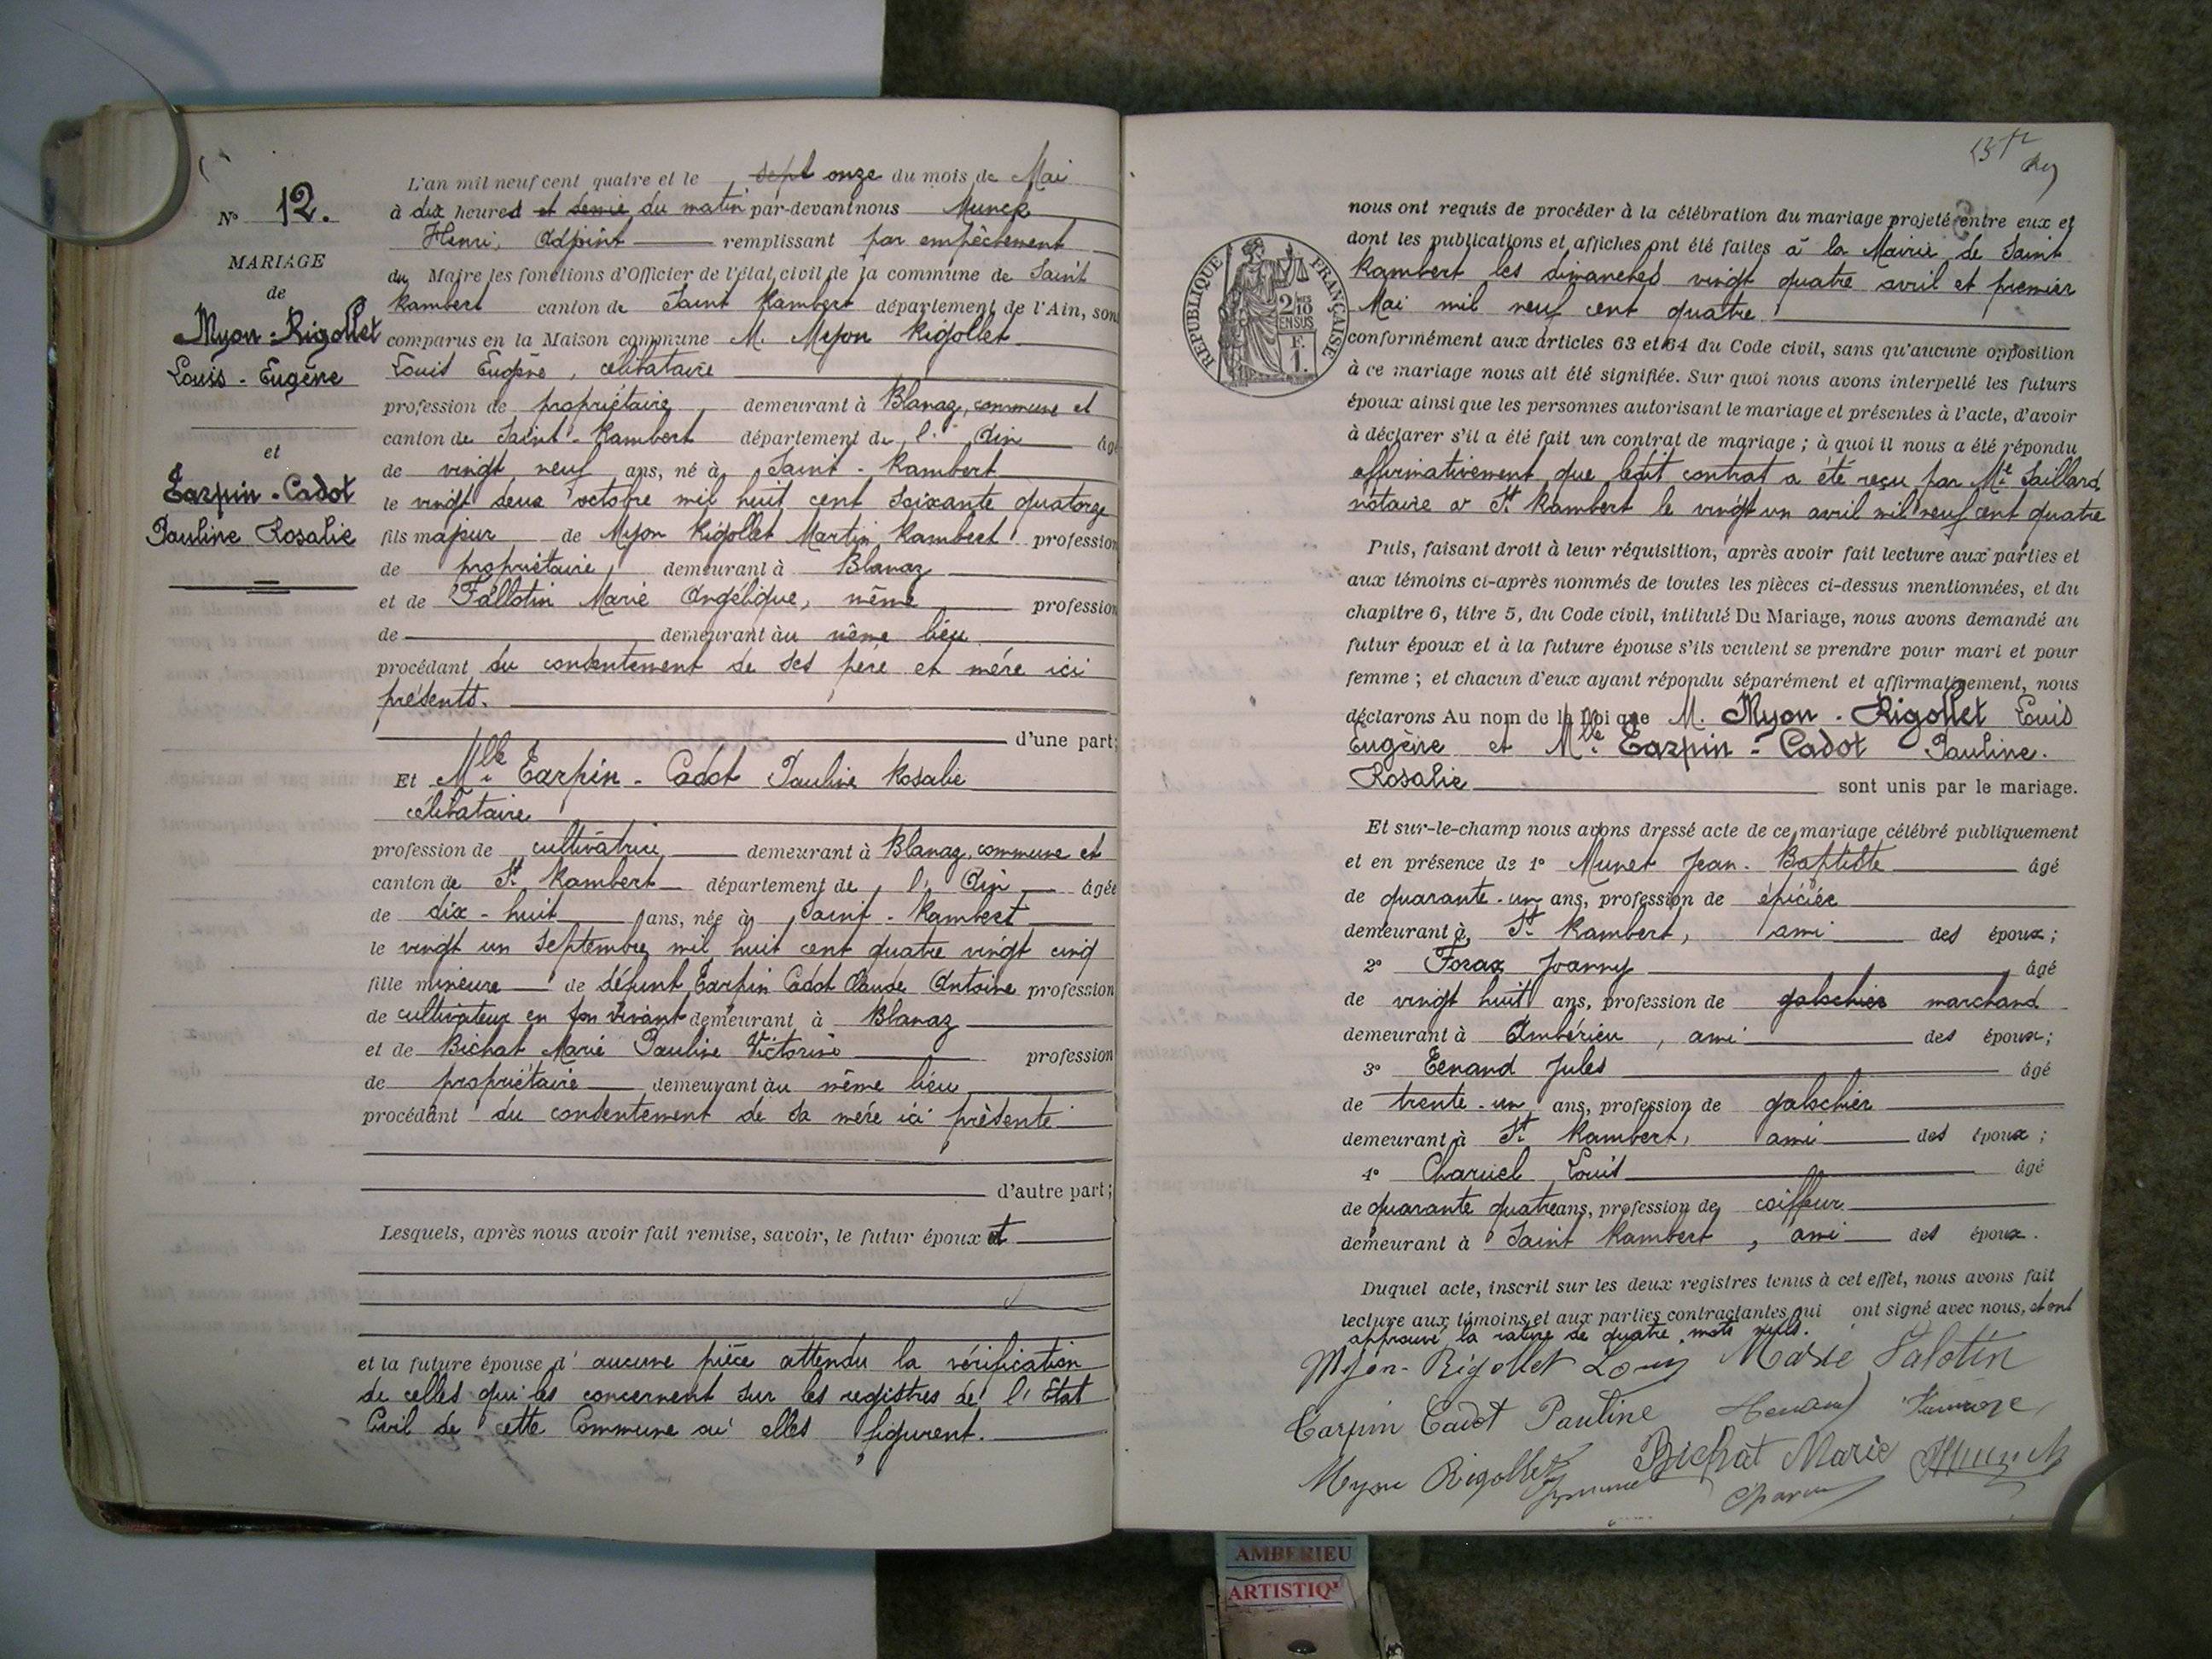 N° 12.
MARIAGE
de
Myon-Rigollet
Louis-Eugène
et
Tarpin-Cadot
Pauline Rosalie
L'an mil neuf cent quatre et le sept onze du mois de Mai
à dix heures et demie du matin par-devant nous Munck
Henri, Adjoint remplissant par empêchement
du Maire les fonctions d'Officier de l'état civil de la commune de Saint
Rambert canton de Saint Rambert département de l'Ain, son
comparus en la Maison commune M. Myon Rigollet
Louis Eugène, célibataire
profession de propriétaire, demeurant à Blanaz, commune et
canton de Saint-Rambert département de l'Ain âgé
de vingt neuf ans, né à Saint-Rambert
le vingt deux octobre mil huit cent soixante quatorze
fils majeur de Myon Rigollet Martin Rambert profession
de propriétaire, demeurant à Blanaz
et de Fallotin Marie Angélique, même profession
de demeurant au même lieu
procédant du consentement de ses père et mère ici
présents.
d'une part;
Et Mlle Tarpin-Cadot Pauline Rosalie
célibataire
profession de cultivatrice demeurant à Blanaz, commune et
canton de St Rambert département de l'Ain âgée
de dix-huit ans, née à Saint-Rambert
le vingt un septembre mil huit cent quatre vingt cinq
fille mineure de défunt Tarpin Cadot Claude Antoine profession
de cultivateur en son vivant demeurant à Blanaz
et de Bichat Marie Pauline Victorine profession
de propriétaire demeurant au même lieu
procédant du consentement de sa mère ici présente
d'autre part;
Lesquels, après nous avoir fait remise, savoir, le futur époux et
et la future épouse d'aucune pièce attendu la vérification
de celles qui les concernent sur les registres de l'Etat
Civil de cette Commune où elles figurent.
RÉPUBLIQUE FRANÇAISE
2/10
EN SUS
F.
1.
nous ont requis de procéder à la célébration du mariage projeté entre eux et
dont les publications et affiches ont été faites à la Mairie de Saint
Rambert les dimanches vingt quatre avril et premier
Mai mil neuf cent quatre
conformément aux articles 63 et 64 du Code civil, sans qu'aucune opposition
à ce mariage nous ait été signifiée. Sur quoi nous avons interpellé les futurs
époux ainsi que les personnes autorisant le mariage et présentes à l'acte, d'avoir
à déclarer s'il a été fait un contrat de mariage; à quoi il nous a été répondu
affirmativement que ledit contrat a été reçu par Me Saillard
notaire à St Rambert le vingt un avril mil neuf cent quatre
Puis, faisant droit à leur réquisition, après avoir fait lecture aux parties et
aux témoins ci-après nommés de toutes les pièces ci-dessus mentionnées, et du
chapitre 6, titre 5, du Code civil, intitulé Du Mariage, nous avons demandé au
futur époux et à la future épouse s'ils veulent se prendre pour mari et pour
femme; et chacun d'eux ayant répondu séparément et affirmativement, nous
déclarons Au nom de la loi que M. Myon-Rigollet Louis
Eugène et Mlle Tarpin-Cadot Pauline.
Rosalie sont unis par le mariage.
Et sur-le-champ nous avons dressé acte de ce mariage célébré publiquement
et en présence de 1° Munet Jean-Baptiste âgé
de quarante-un ans, profession de épicier
demeurant à St Rambert, ami des époux;
2° Foraz Joanny âgé
de vingt huit ans, profession de galochier marchand
demeurant à Ambérieu, ami des époux;
3° Tenand Jules âgé
de trente-un ans, profession de galochier
demeurant à St Rambert, ami des époux;
4° Charvel Louis âgé
de quarante quatre ans, profession de coiffeur
demeurant à Saint Rambert, ami des époux.
Duquel acte, inscrit sur les deux registres tenus à cet effet, nous avons fait
lecture aux témoins et aux parties contractantes qui ont signé avec nous, et ont
approuvé la rature de quatre mots nuls.
Myon-Rigollet Louis Marie Falotin
Tarpin Cadot Pauline
Myon Rigollet Bichat Marie HMunck
AMBERIEU
ARTISTIQ